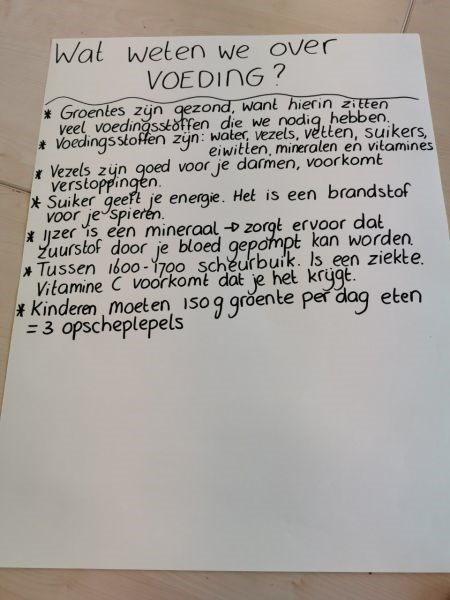 Wat weten we over
VOEDING?
* Groentes zijn gezond, want hierin zitten
veel voedingsstoffen die we nodig hebben.
* Voedingsstoffen zijn: water, vezels, vetten, suikers,
eiwitten, mineralen en vitamines
* Vezels zijn goed voor je darmen, voorkomt
verstoppingen.
* Suiker geeft je energie. Het is een brandstof
voor je spieren.
* Ijzer is een mineraal → zorgt ervoor dat
zuurstof door je bloed gepompt kan worden.
* Tussen 1600-1700 scheurbuik. Is een ziekte.
Vitamine C voorkomt dat je het krijgt.
* Kinderen moeten 150 g groente per dag eten
= 3 opscheplepels